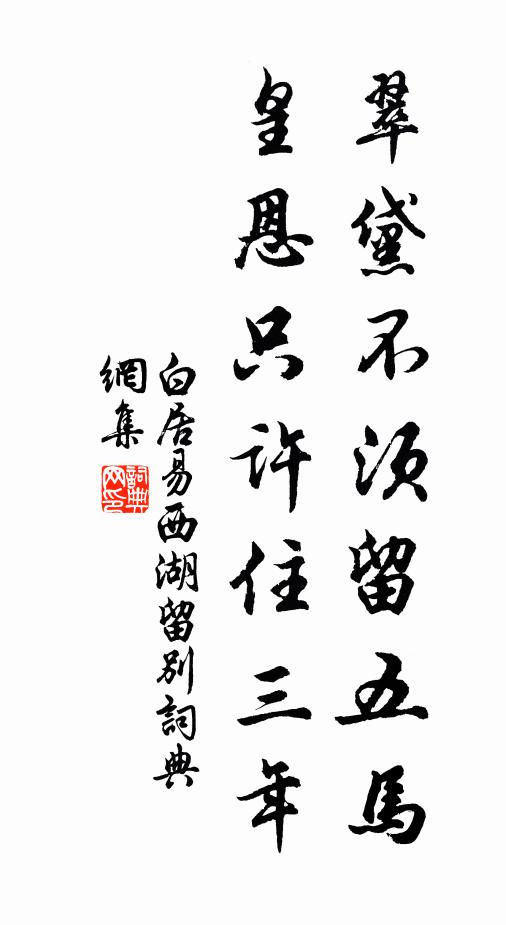 翠黛不須留五馬
皇恩只許住三年
白居易西湖留别詞典
網集
詞典
网印